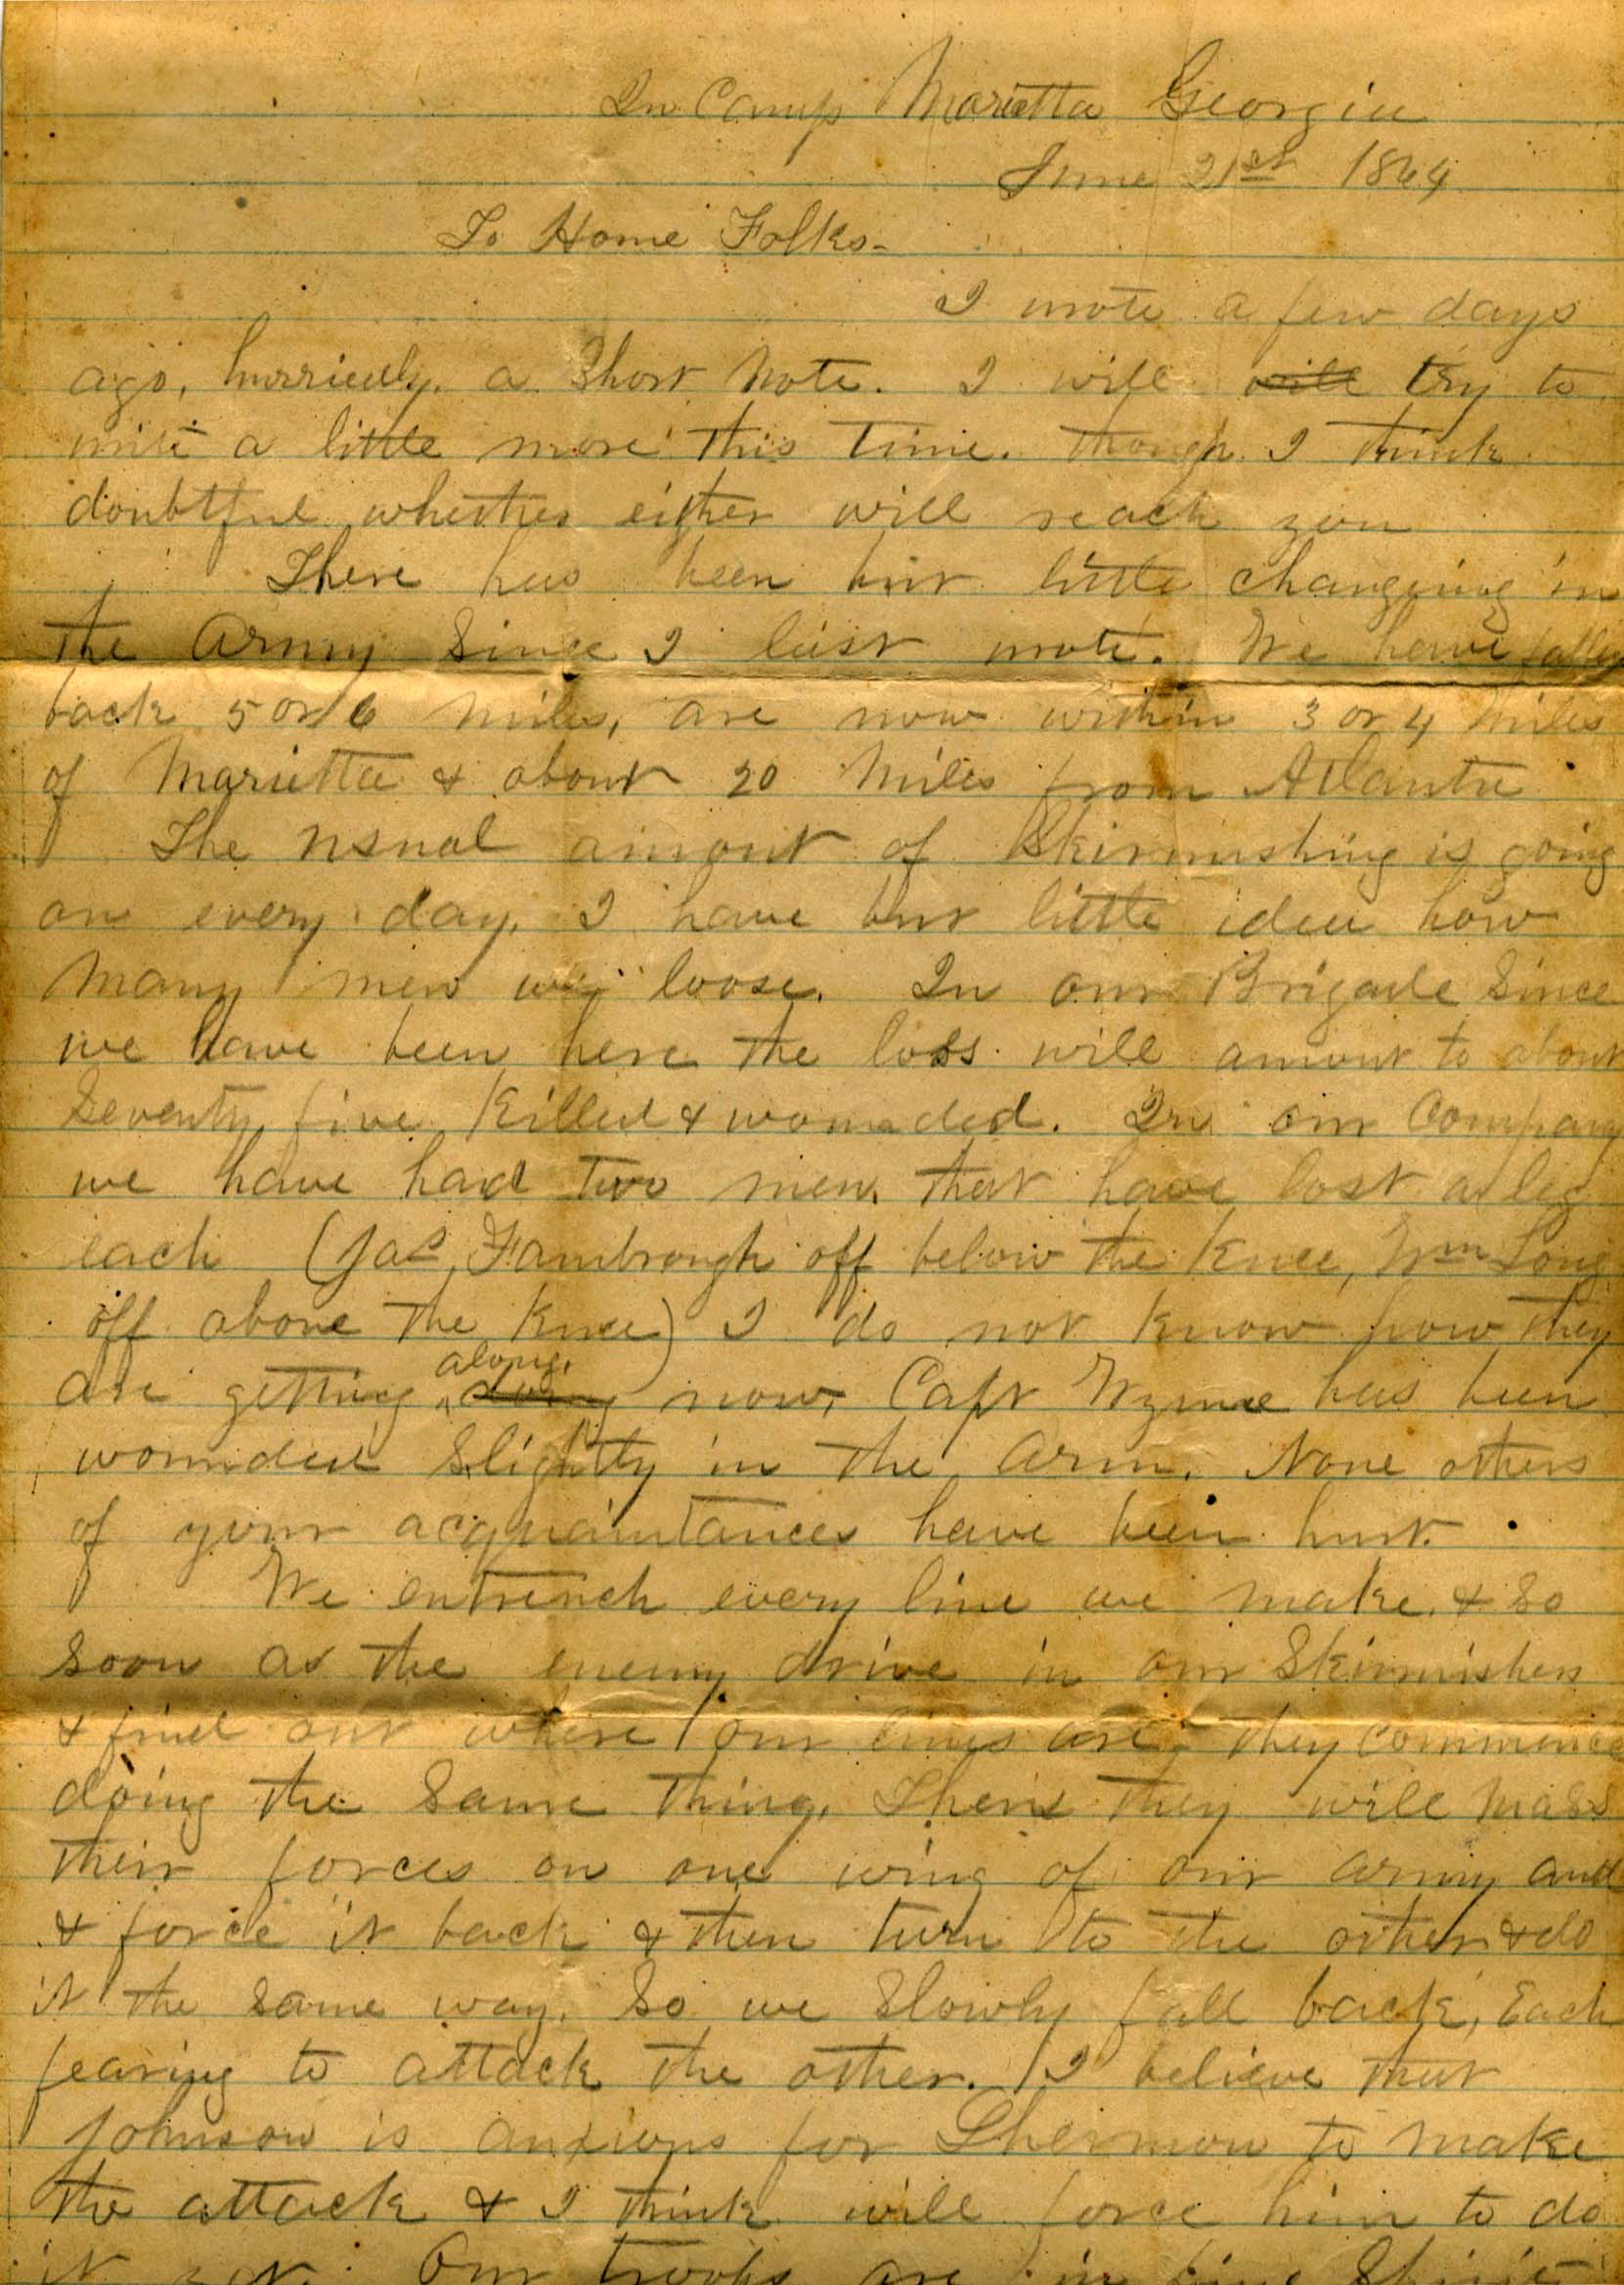 In Camp Marietta Georgia
June 21st 1864
To Home Folks-
I wrote a few days
ago, hurriedly, a Short Note. I will will try to
write a little more this time. though I think
doubtful whether either will reach you
There has been but little changeing in
the Army Since I last wrote. We have fallen
back 5 or 6 miles, are now within 3 or 4 Miles
of Marietta & about 20 Miles from Atlanta
The usual amount of Skirmishing is going
on every day, I have but little idea how
Many men we loose. In our Brigade Since
we have been here the loss will amount to about
Seventy five Killed & wounded. In our Company
we have had two men that have lost a leg
each (Jas Fambrough off below the Knee, Wm Long
off above the Knee) I do not Know how they
are getting along doing now, Capt Wynne has been
wounded Slightly in the Arm. None others
of your acquaintances have been hurt.
We entrench every line we make, & So
Soon as the enemy drive in our Skirmishers
& find out where our lines are, they commence
doing the Same thing, Then they will Mass
their forces on one wing of our army and
& force it back & then turn to the other & do
it the same way. So we Slowly fall back, Each
fearing to attack the other. I believe that
Johnson is anxious for Shermon to make
the attack & I think will force him to do
it yet. Our troops are in fine Spirit